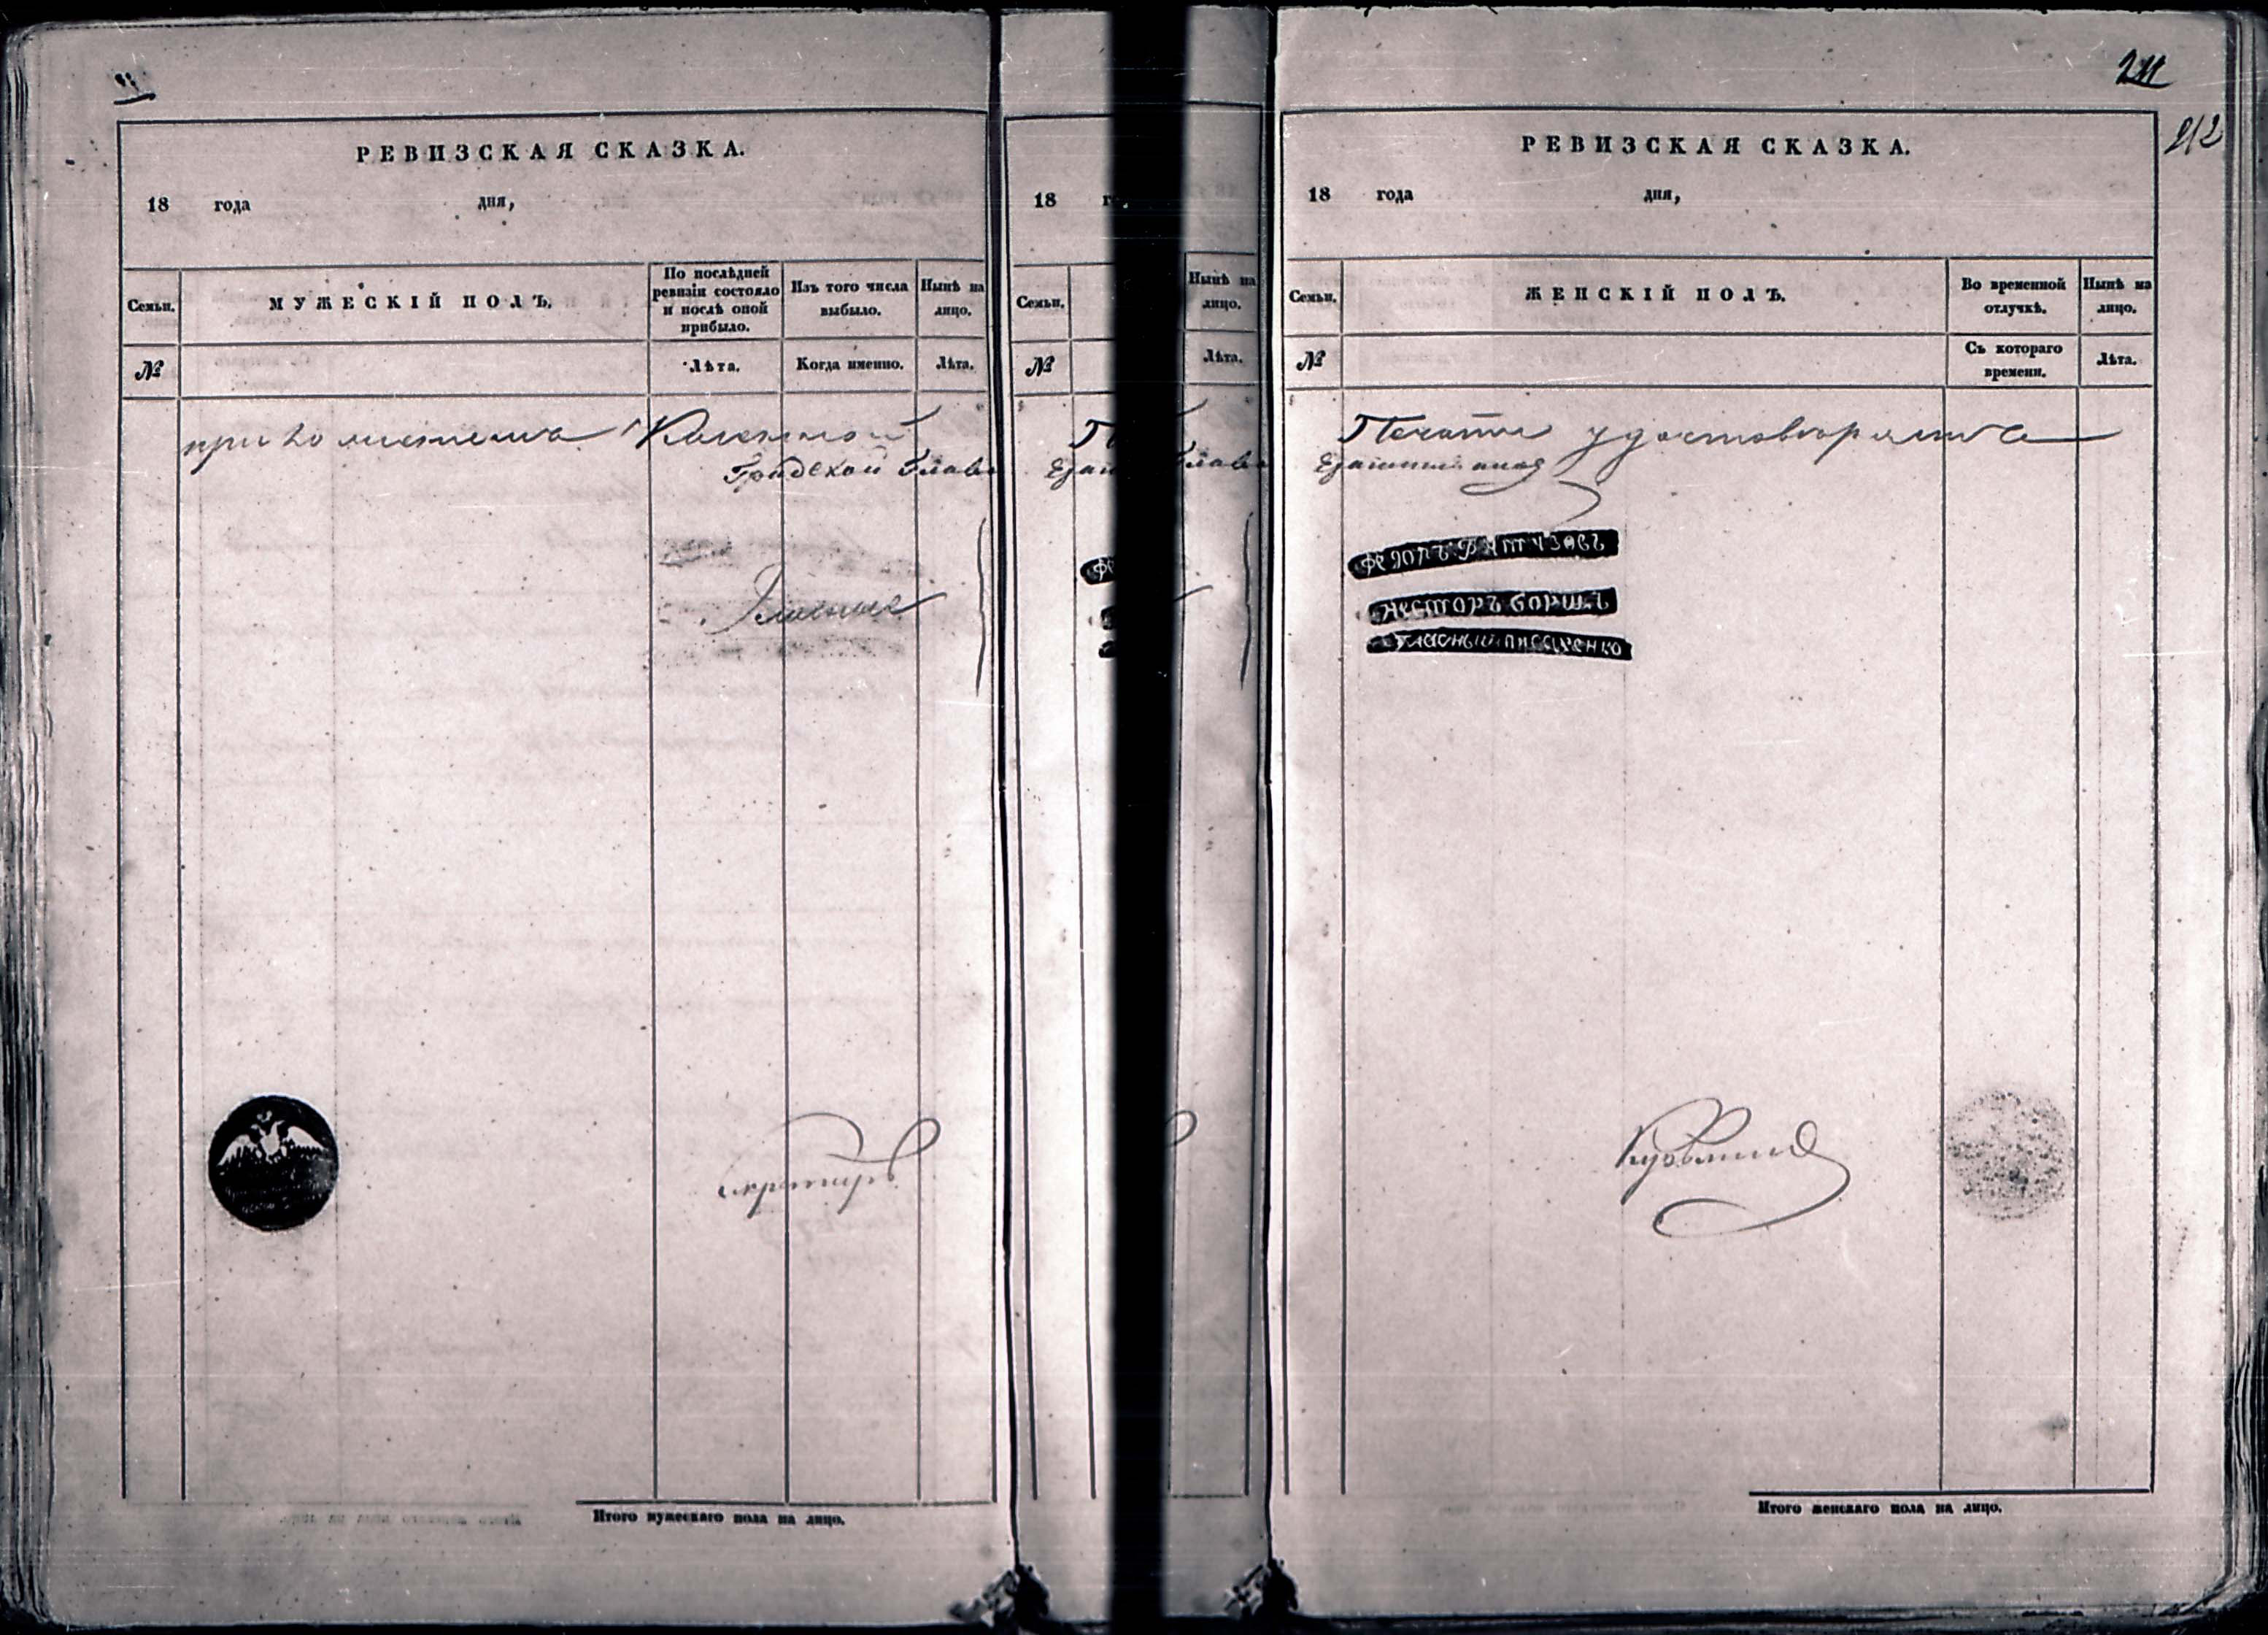 РЕВИЗСКАЯ СКАЗКА.
18 года дня,
Семьи.
МУЖЕСКІЙ ПОЛЪ.
По послѣдней ревизіи состояло и послѣ оной прибыло.
Изъ того числа выбыло.
Нынѣ на лицо.
№
Лѣта.
Когда именно.
Лѣта.
Градской Глава
Итого мужескаго пола на лицо.
18
Семьи.
№
Нынѣ на лицо.
Лѣта.
211
212
РЕВИЗСКАЯ СКАЗКА.
18 года дня,
Семьи.
ЖЕНСКІЙ ПОЛЪ.
Во временной отлучкѣ.
Нынѣ на лицо.
№
Съ котораго времени.
Лѣта.
Печати
НЕСТОРЪ БОРЩЪ
ГЛАСНЫЙ ПИСАРЕНКО
Итого женскаго пола на лицо.